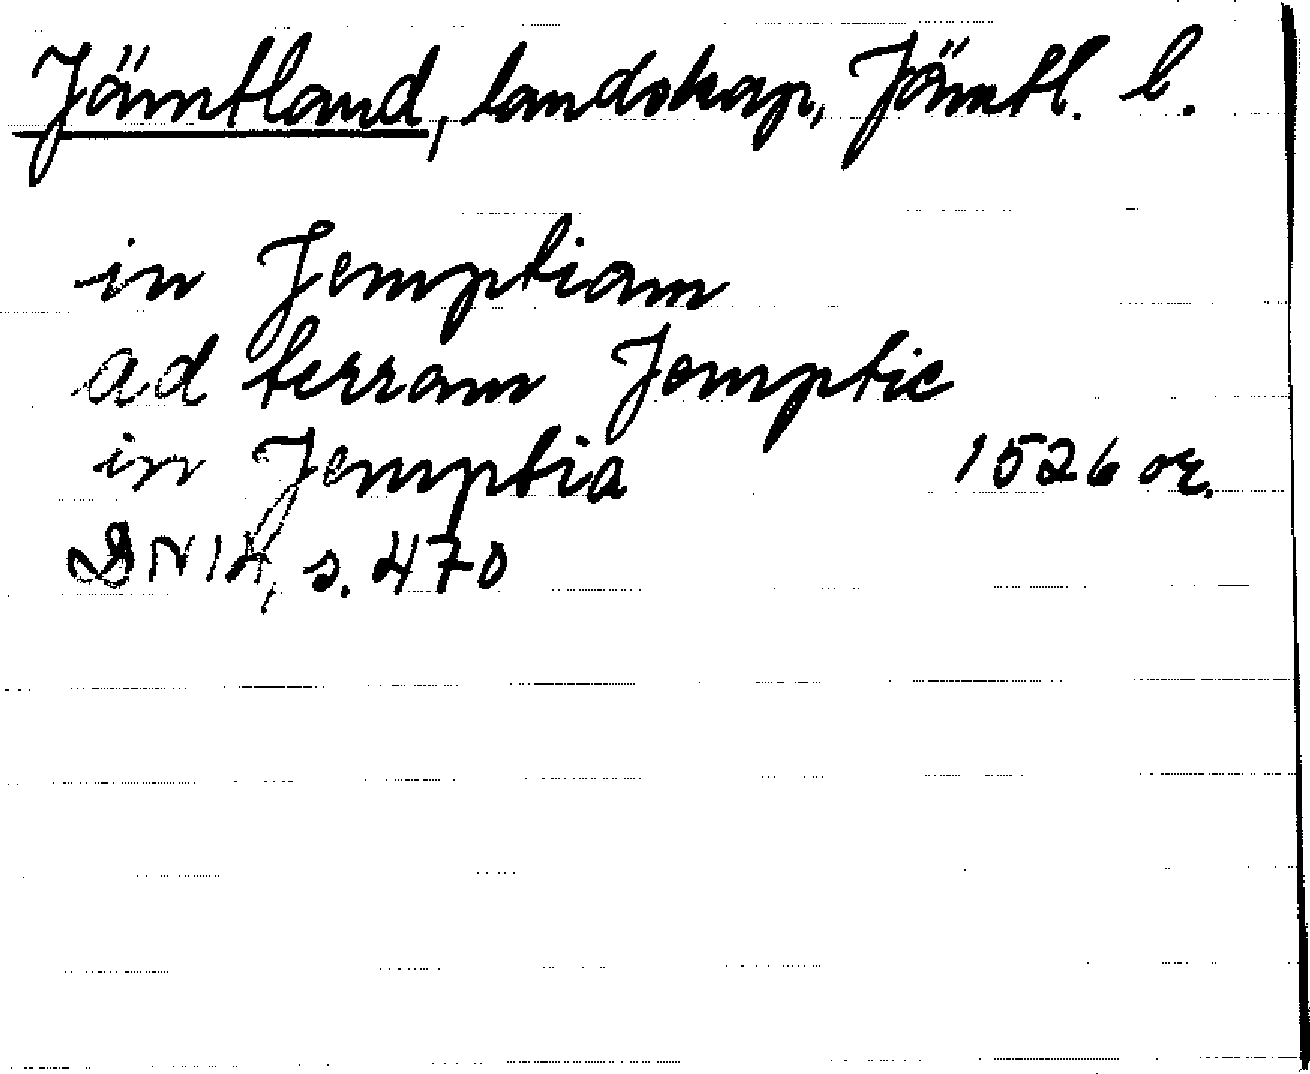 Jämtland, landskap, Jämtl. l.
in Jemptiam
ad terram Jemptie
in Jemptia 1526 or.
DN 14, s. 470